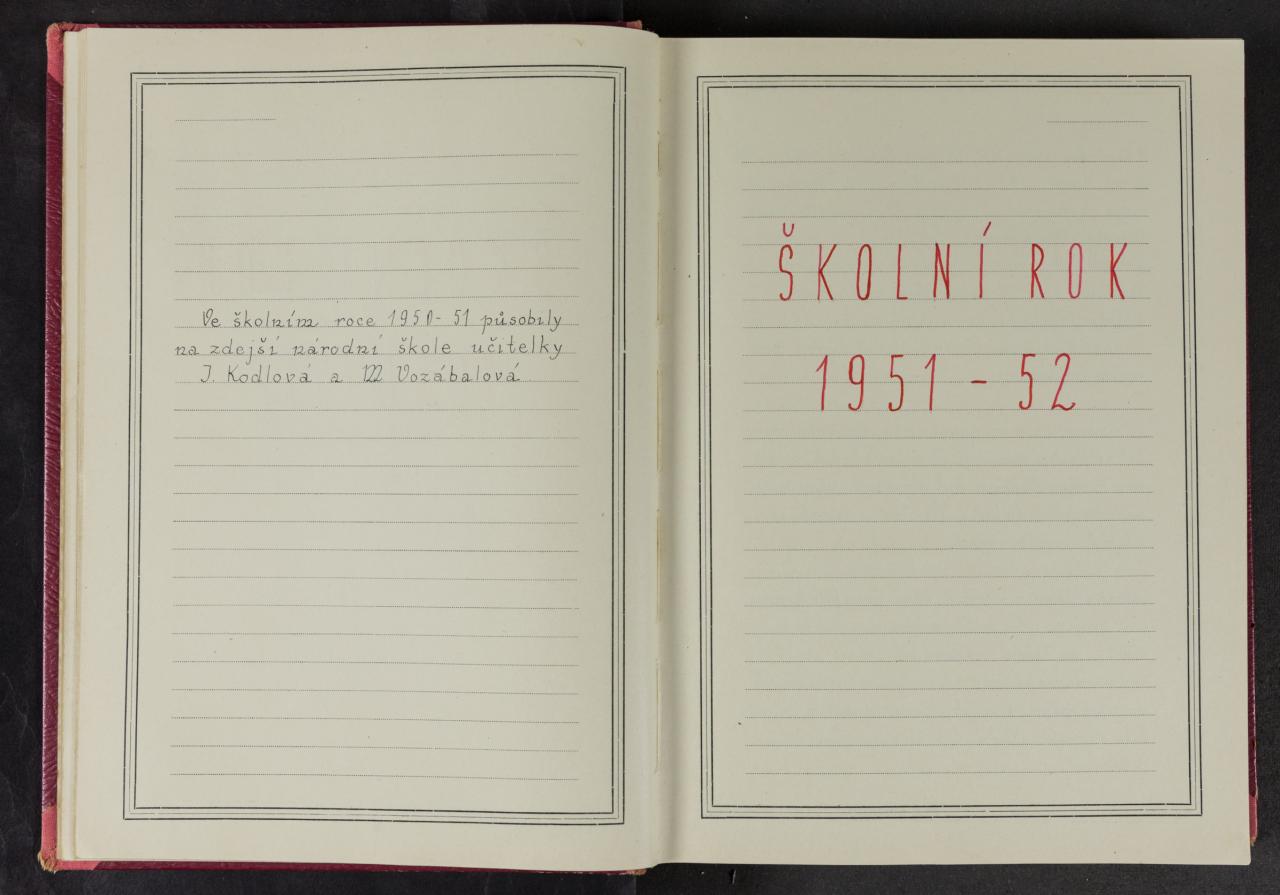 Ve školním roce 1950-51 působily
na zdejší národní škole učitelky
J. Kodlová a M Vozábalová.
ŠKOLNÍ ROK
1951-52